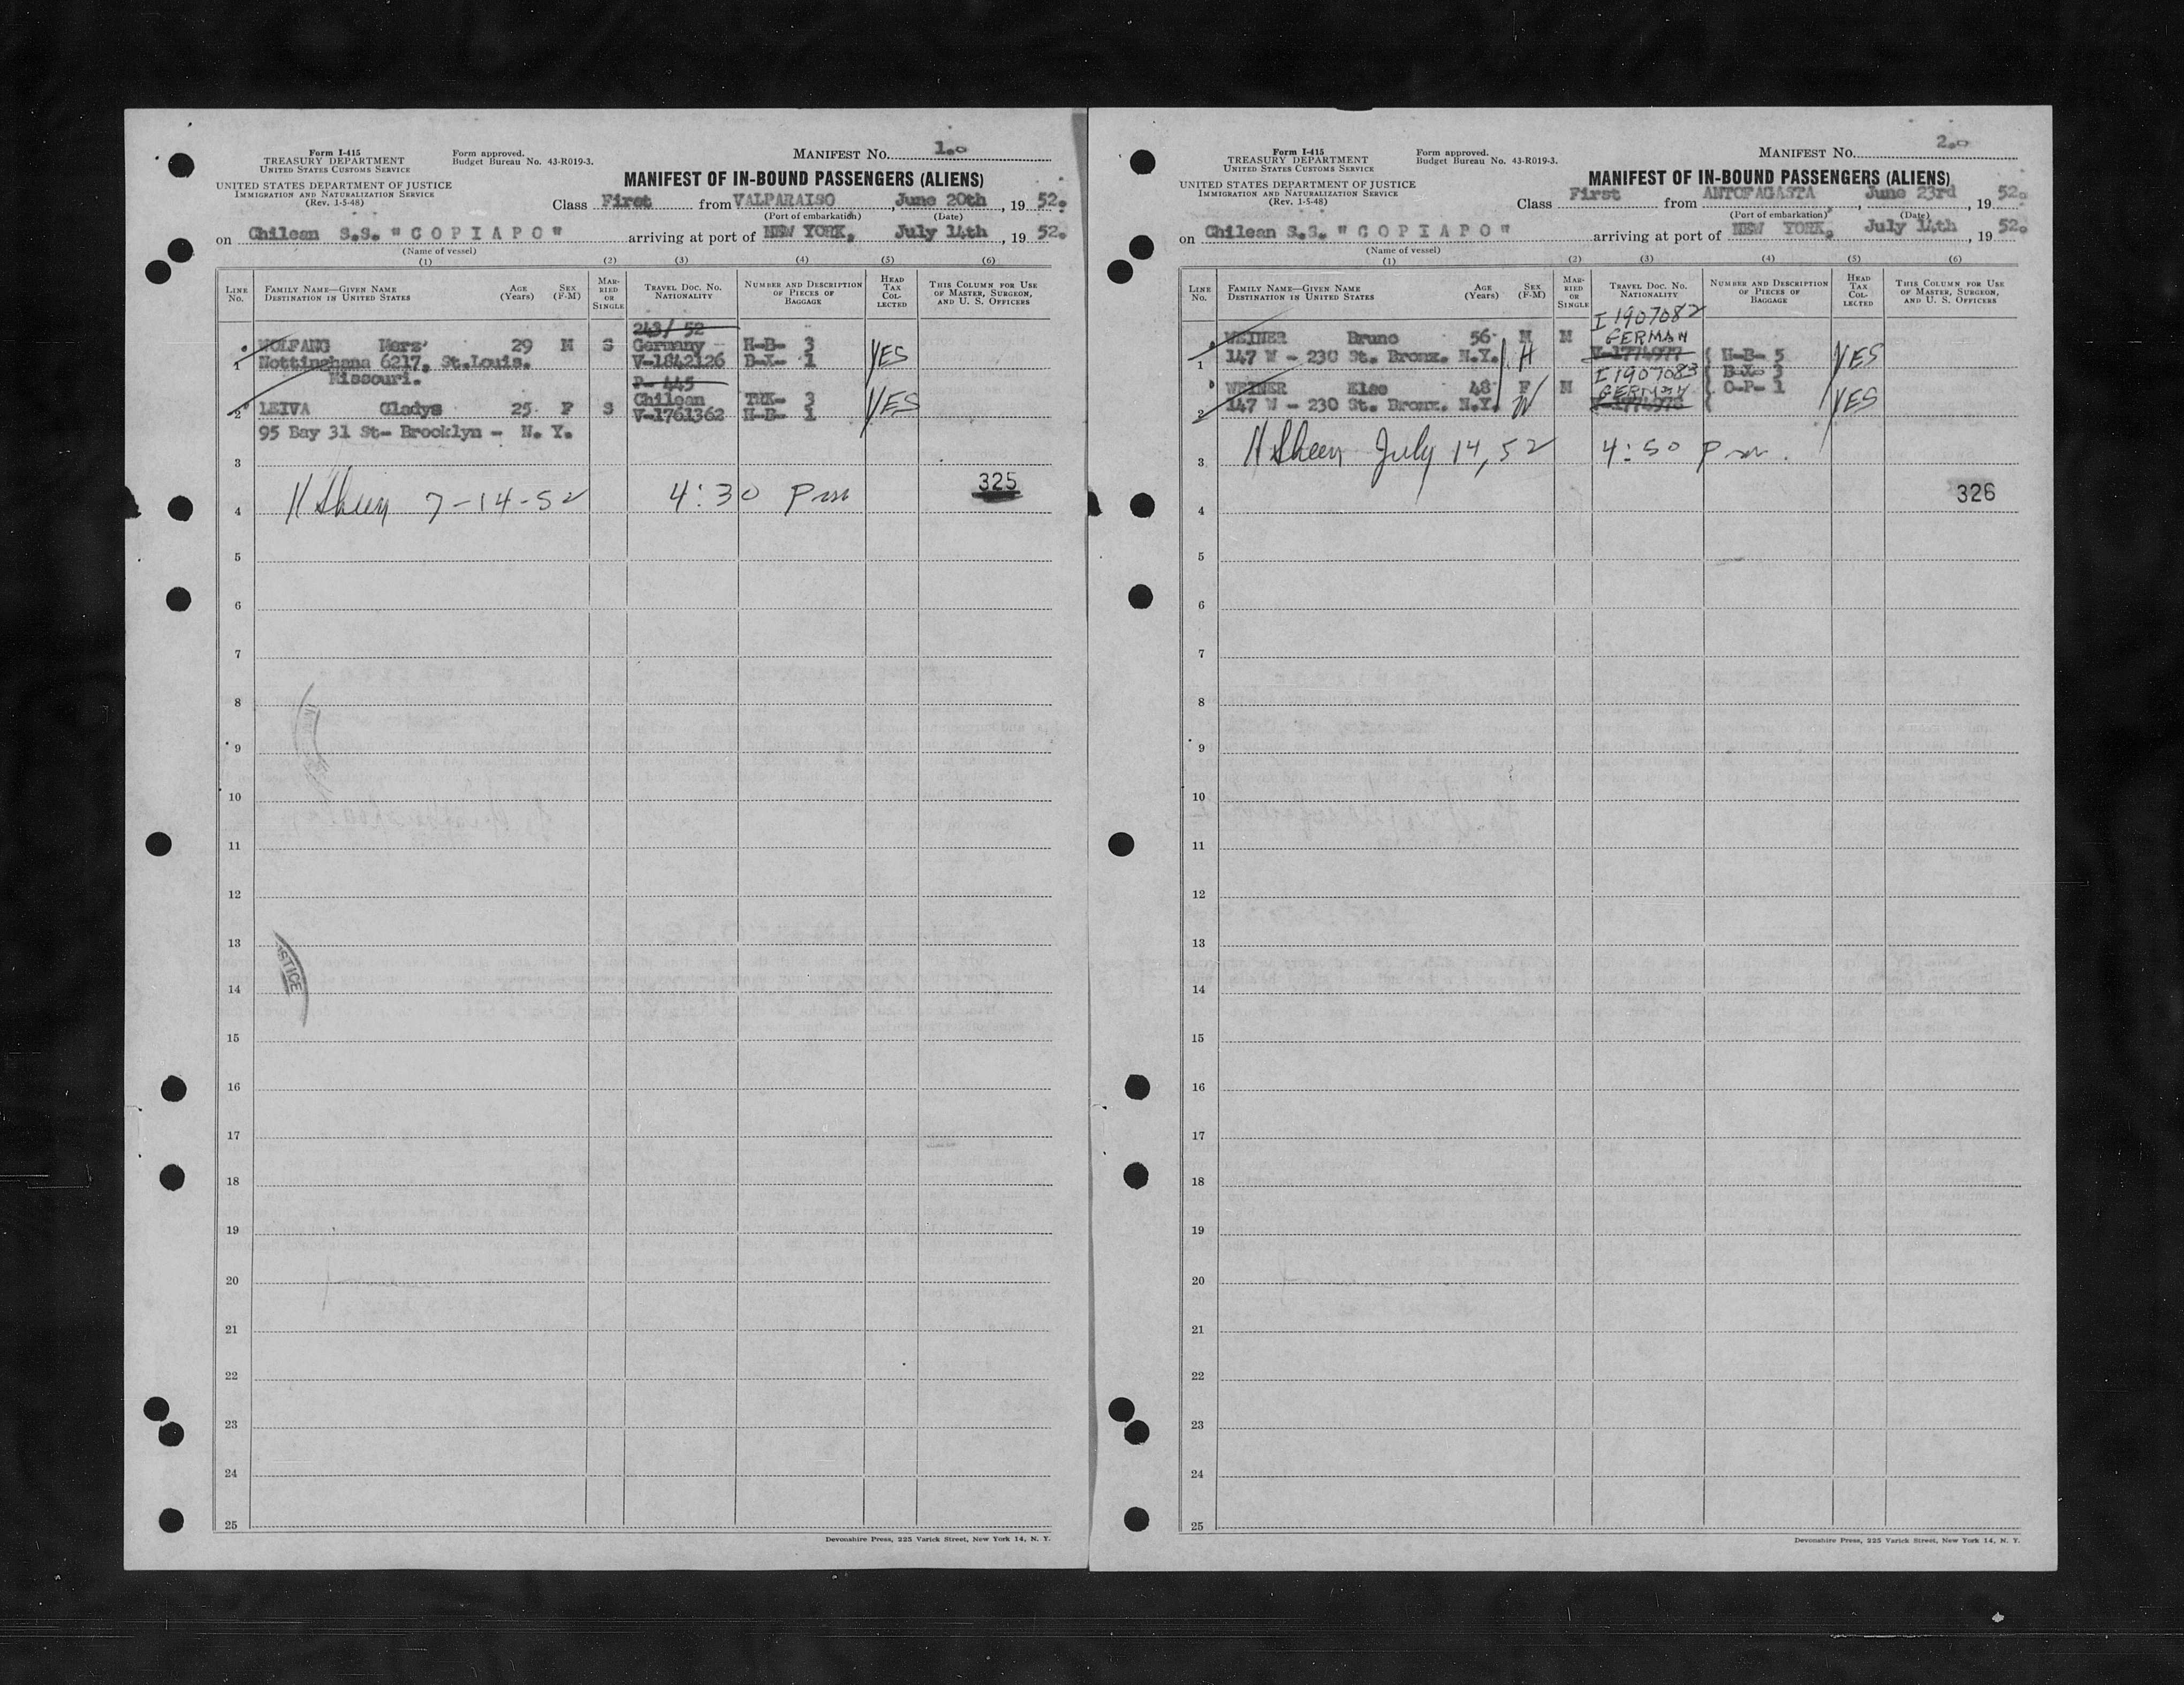 Form I-415
TREASURY DEPARTMENT
UNITED STATES CUSTOMS SERVICE
UNITED STATES DEPARTMENT OF JUSTICE
IMMIGRATION AND NATURALIZATION SERVICE
(Rev. 1-5-48)
Form approved.
Budget Bureau No. 43-R019-3.
MANIFEST No. 1.
MANIFEST OF IN-BOUND PASSENGERS (ALIENS)
Class First from VALPARAISO , June 20th , 19 52.
(Port of embarkation) (Date)
on Chilean S.S. "COPIAPO" arriving at port of NEW YORK, July 14th , 19 52.
(Name of vessel)
(1) (2) (3) (4) (5) (6)
LINE No. FAMILY NAME—GIVEN NAME DESTINATION IN UNITED STATES AGE (Years) SEX (F-M) MARRIED OR SINGLE TRAVEL DOC. NO. NATIONALITY NUMBER AND DESCRIPTION OF PIECES OF BAGGAGE HEAD TAX COLLECTED THIS COLUMN FOR USE OF MASTER, SURGEON, AND U. S. OFFICERS
243/ 52
WOLFANG Merz 29 M S Germany H-B- 3
1 Nottinghama 6217, St.Louis. V-1842126 B-X- 1 YES
Missouri. P- 445
2 LEIVA Gladys 25 F S Chilean TRK- 3 YES
V-1761362 H-B- 1
95 Bay 31 St- Brooklyn - N. Y.
3
H Sheen 7-14-52 4:30 Pm 325
4
5
6
7
8
9
10
11
12
13
STICE
14
15
16
17
18
19
20
21
22
23
24
25
Devonshire Press, 225 Varick Street, New York 14, N. Y.
Form I-415
TREASURY DEPARTMENT
UNITED STATES CUSTOMS SERVICE
UNITED STATES DEPARTMENT OF JUSTICE
IMMIGRATION AND NATURALIZATION SERVICE
(Rev. 1-5-48)
Form approved.
Budget Bureau No. 43-R019-3.
MANIFEST No. 2.
MANIFEST OF IN-BOUND PASSENGERS (ALIENS)
Class First from ANTOFAGASTA , June 23rd , 19 52.
(Port of embarkation) (Date)
on Chilean S.S. "COPIAPO" arriving at port of NEW YORK, July 14th , 19 52.
(Name of vessel)
(1) (2) (3) (4) (5) (6)
LINE No. FAMILY NAME—GIVEN NAME DESTINATION IN UNITED STATES AGE (Years) SEX (F-M) MARRIED OR SINGLE TRAVEL DOC. NO. NATIONALITY NUMBER AND DESCRIPTION OF PIECES OF BAGGAGE HEAD TAX COLLECTED THIS COLUMN FOR USE OF MASTER, SURGEON, AND U. S. OFFICERS
I 1907082
WEINER Bruno 56 M M GERMAN
1 147 W - 230 St. Bronx. N.Y. H V-1774977 H-B- 5 YES
I 1907083 B-X- 3
WEINER Else 48 F M GERMAN O-P- 1
2 147 W - 230 St. Bronx. N.Y. W V-1774978 YES
3 H Sheen July 14, 52 4:50 Pm.
326
4
5
6
7
8
9
10
11
12
13
14
15
16
17
18
19
20
21
22
23
24
25
Devonshire Press, 225 Varick Street, New York 14, N. Y.